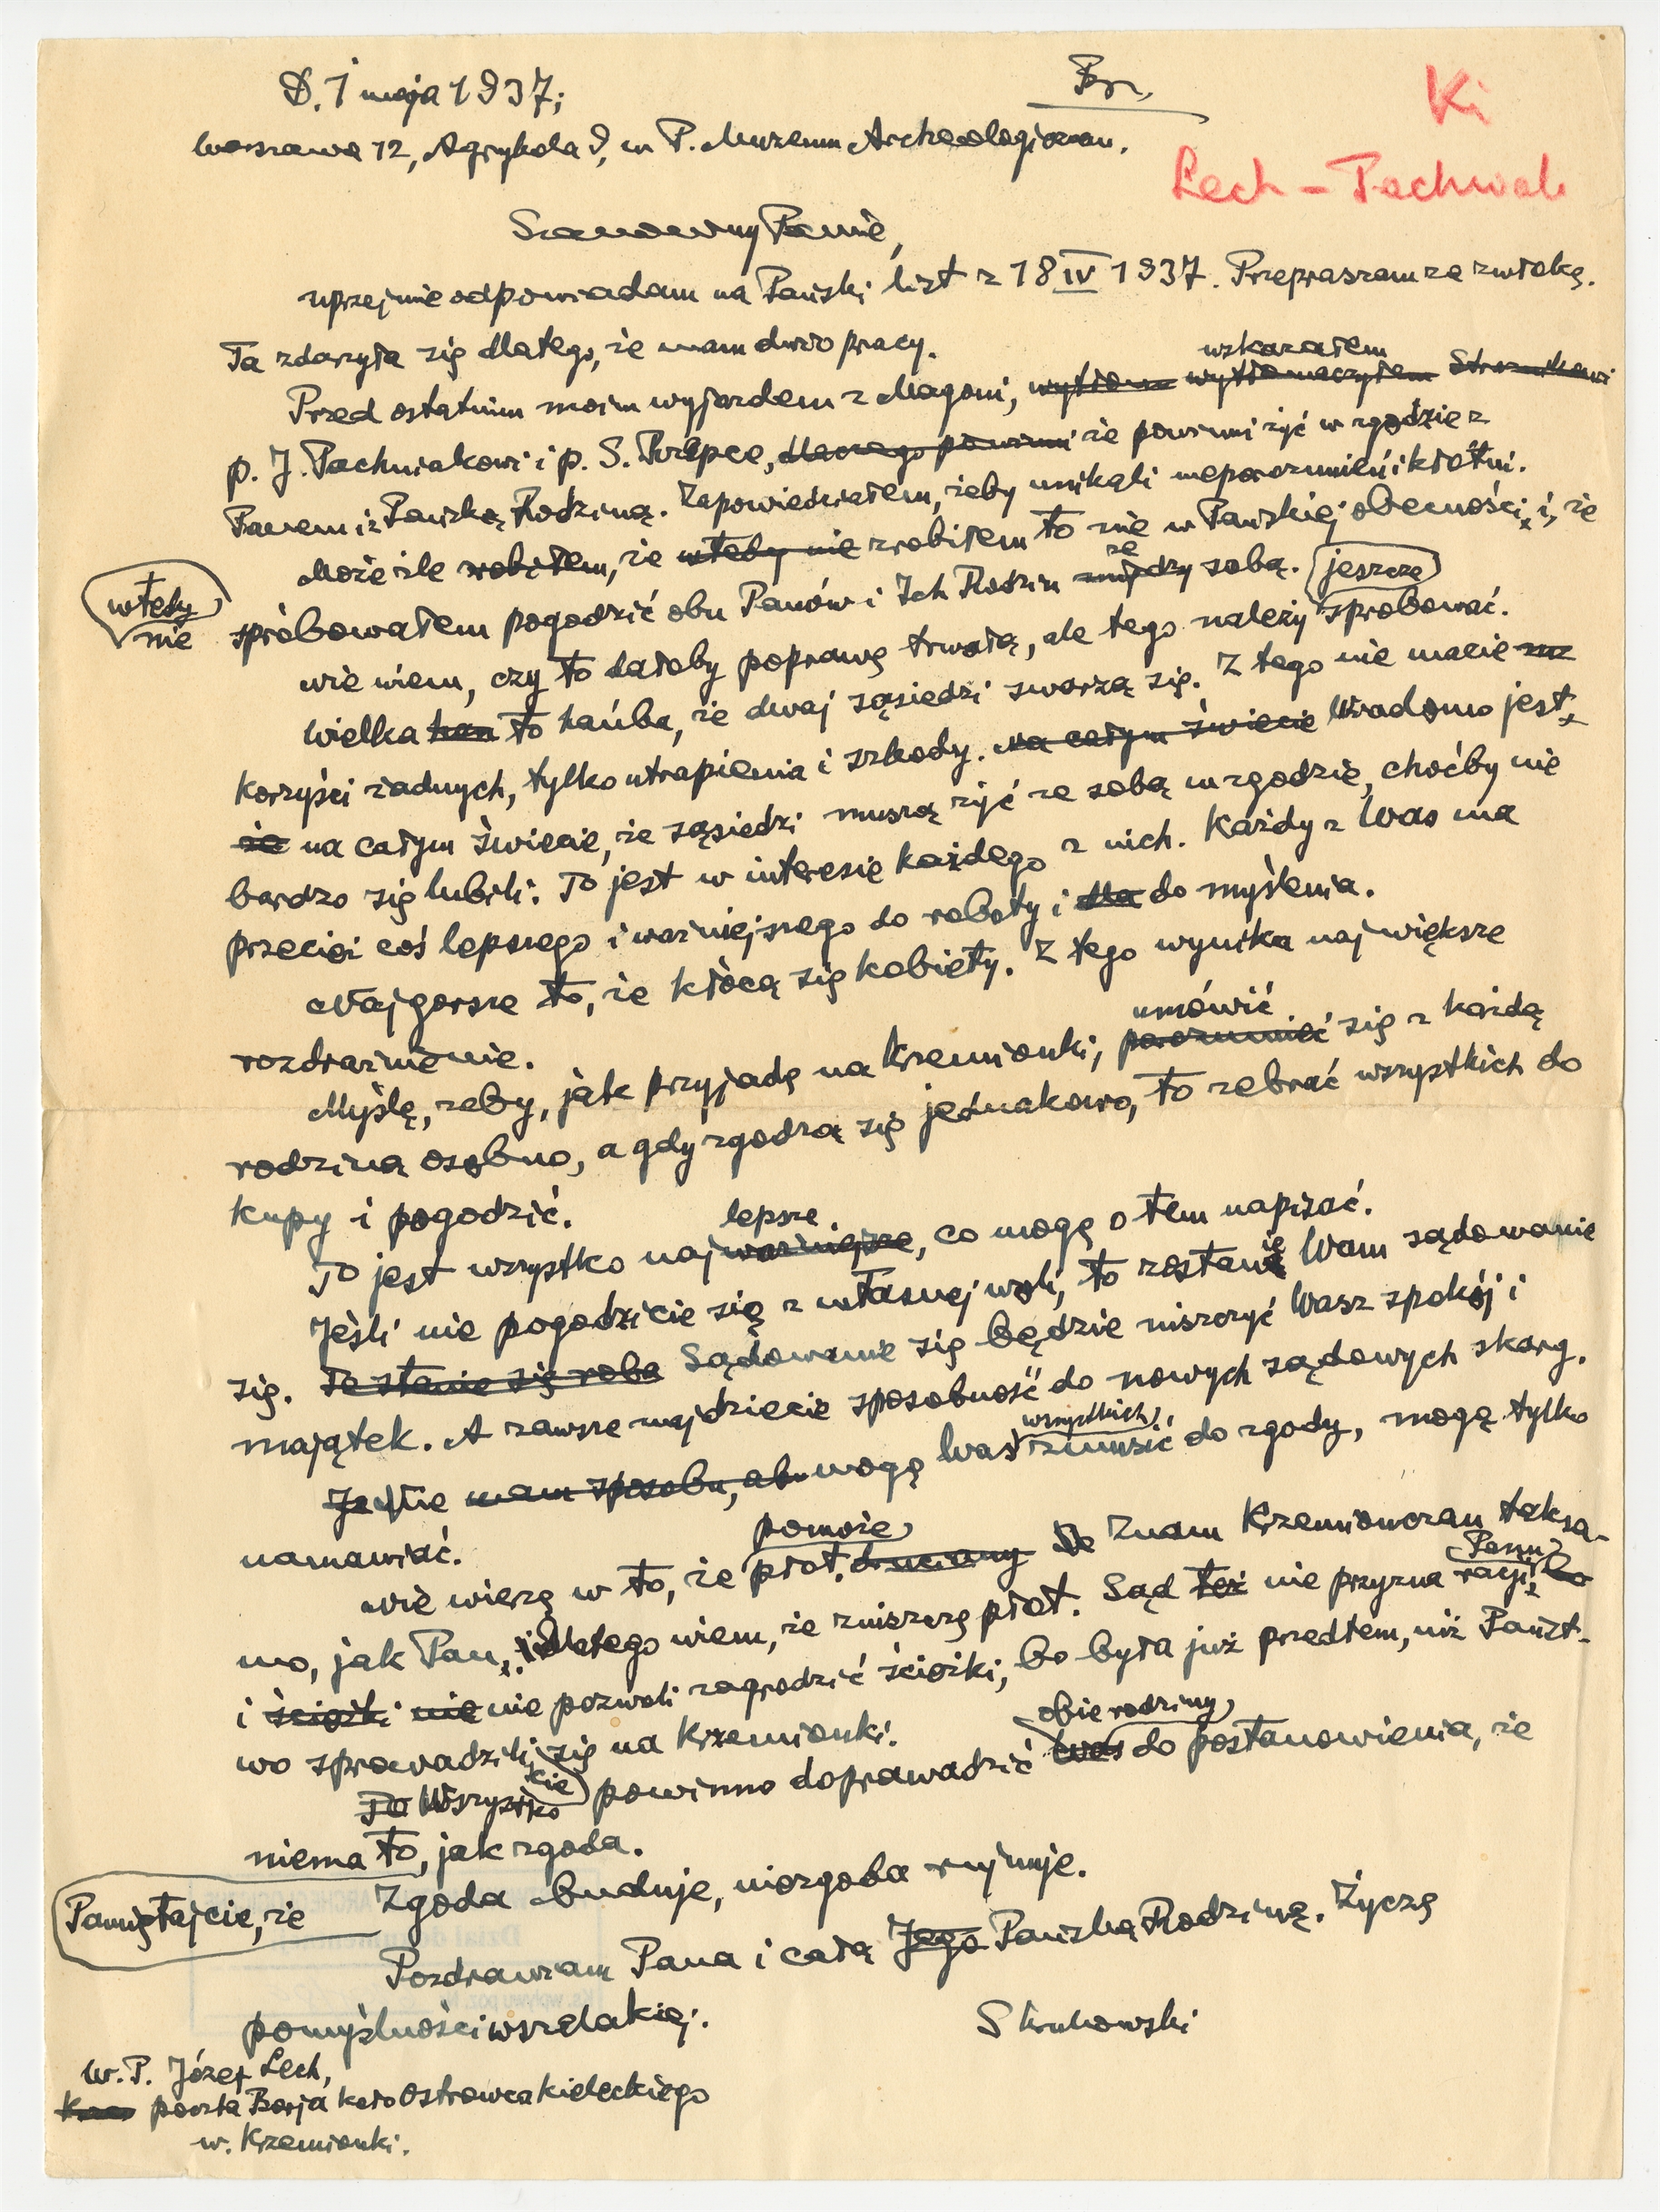 D. 1 maja 1937;
Br.
Warszawa 12, Agrykola 9, w P. Muzeum Archeologiczn.
Ki
Lech - Pachwak
Szanowny Panie,
uprzejmie odpowiadam na Pański list z 18 IV 1937. Przepraszam za zwłokę.
Ta zdarzyła się dlatego, że mam dużo pracy.
wskazałem
Przed ostatnim moim wyjazdem z Magoni, wytłoma wytłomaczyłem
p. J. Pachniakowi i p. S. Krępce, dlaczego powinni że powinni żyć w zgodzie z
Panem i z Pańską Rodziną. Zapowiedziałem, żeby unikali nieporozumień i kłótni.
Może źle robiłem, że wtedy nie zrobiłem to nie w Pańskiej obecności, i, że
wtedy
nie
spróbowałem pogodzić obu Panów i Ich Rodzin między ze sobą.
jeszcze
Nie wiem, czy to dałoby poprawę trwałą, ale tego należy spróbować.
Wielka han to hańba, że dwaj sąsiedzi swarzą się. Z tego nie macie na
korzyści żadnych, tylko utrapienia i szkody. Na całym świecie Wiadomo jest,
że na całym świecie, że sąsiedzi muszą żyć ze sobą w zgodzie, choćby nie
bardzo się lubili. To jest w interesie każdego z nich. Każdy z Was ma
przecież coś lepszego i ważniejszego do roboty i dla do myślenia.
Najgorsze to, że kłócą się kobiety. Z tego wynika największe
rozdrażnienie.
umówić
Myślę, żeby, jak przyjadę na Krzemionki, porozumieć się z każdą
rodziną osobno, a gdy zgodzą się jednakowo, to zebrać wszystkich do
kupy i pogodzić.
lepsze
To jest wszystko najważniejsze, co mogę o tem napisać.
Jeśli nie pogodzicie się z własnej woli, to zostanie Wam sądowanie
się. To stanie się Sądowanie się będzie niszczyć Wasz spokój i
majątek. A zawsze znajdziecie sposobność do nowych sądowych skarg.
wszystkich
Ja Nie mam sposobu, aby mogę Was zmusić do zgody, mogę tylko
namawiać.
pomoże
Nie wierzę w to, że płot druciany Znam Krzemionczan tak sa-
mo, jak Pan, i dlatego wiem, że zniszczą płot. Sąd też nie przyzna racji, bo
Panu
i ścieżki nie nie pozwoli zagrodzić ścieżki, bo była już przedtem, niż Państ-
wo sprowadzili się na Krzemionki.
obie rodziny
To Wszystko powinno doprowadzić Was do postanowienia, że
niema to, jak zgoda.
Pamiętajcie, że Zgoda buduje, niezgoda rujnuje.
Pozdrawiam Pana i całą Jego Pańską Rodzinę. Życzę
pomyślności wszelakiej.
S Krukowski
W. P. Józef Lech,
poczta Borja koło Ostrowca kieleckiego
w. Krzemionki.